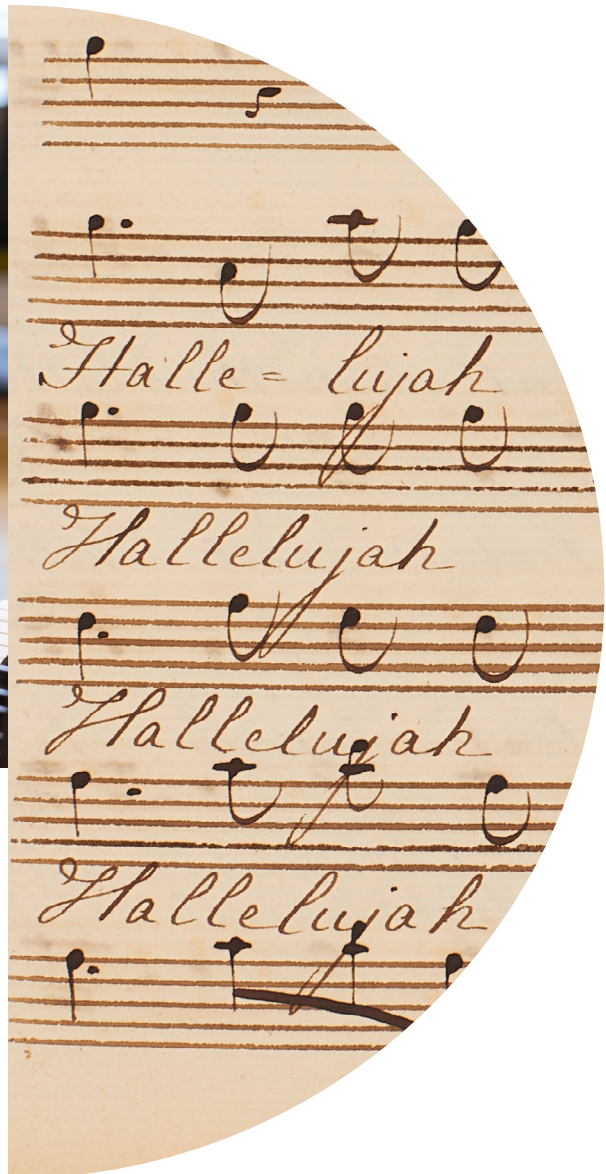 Halle= lujah
Hallelujah
Hallelujah
Hallelujah